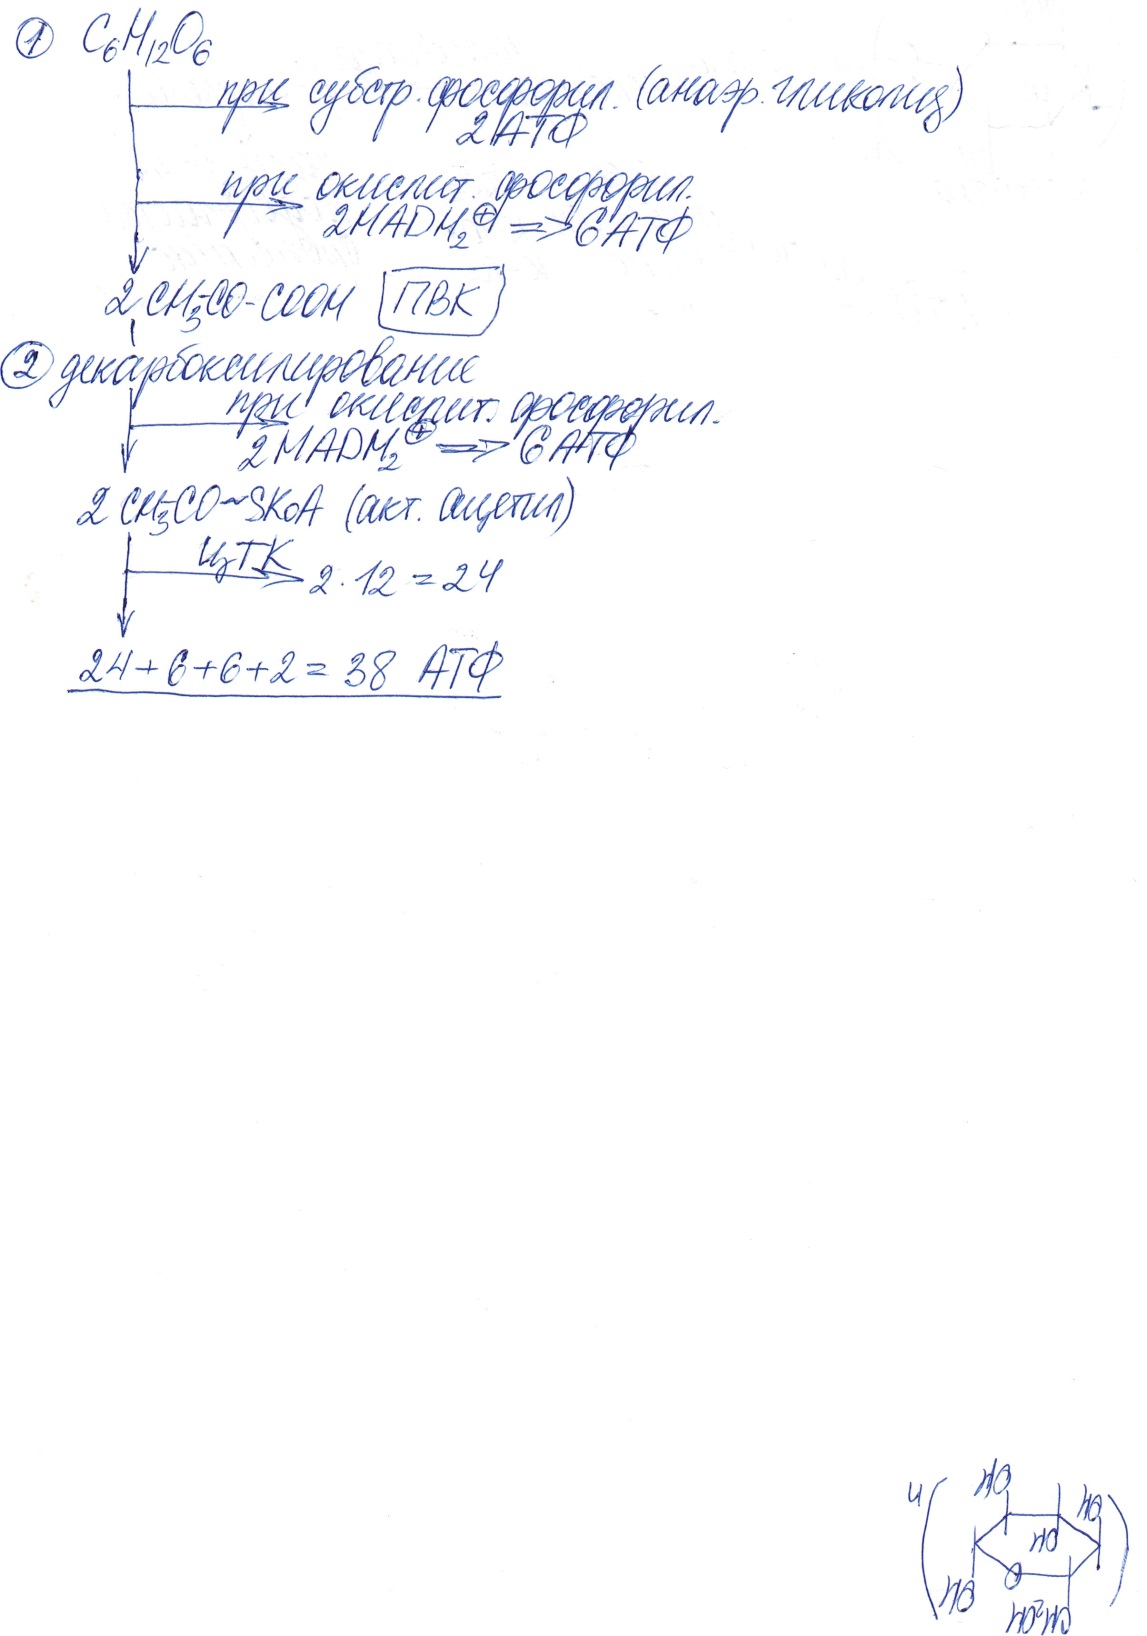 ① C₆H₁₂O₆
при субстр. фосфорил. (анаэр. гликолиз)
2 АТФ
при окислит. фосфорил.
2НАDН₂⊕ => 6 АТФ
2 CH₃-CO-COOH ПВК
② декарбоксилирование
при окислит. фосфорил.
2НАDН₂⊕ => 6 АТФ
2 CH₃-CO~SKoA (акт. ацетил)
ЦТК
2·12 = 24
24+6+6+2 = 38 АТФ
4
OH
OH
OH
O
OH
CH₂OH